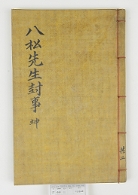 八松先生封事 坤